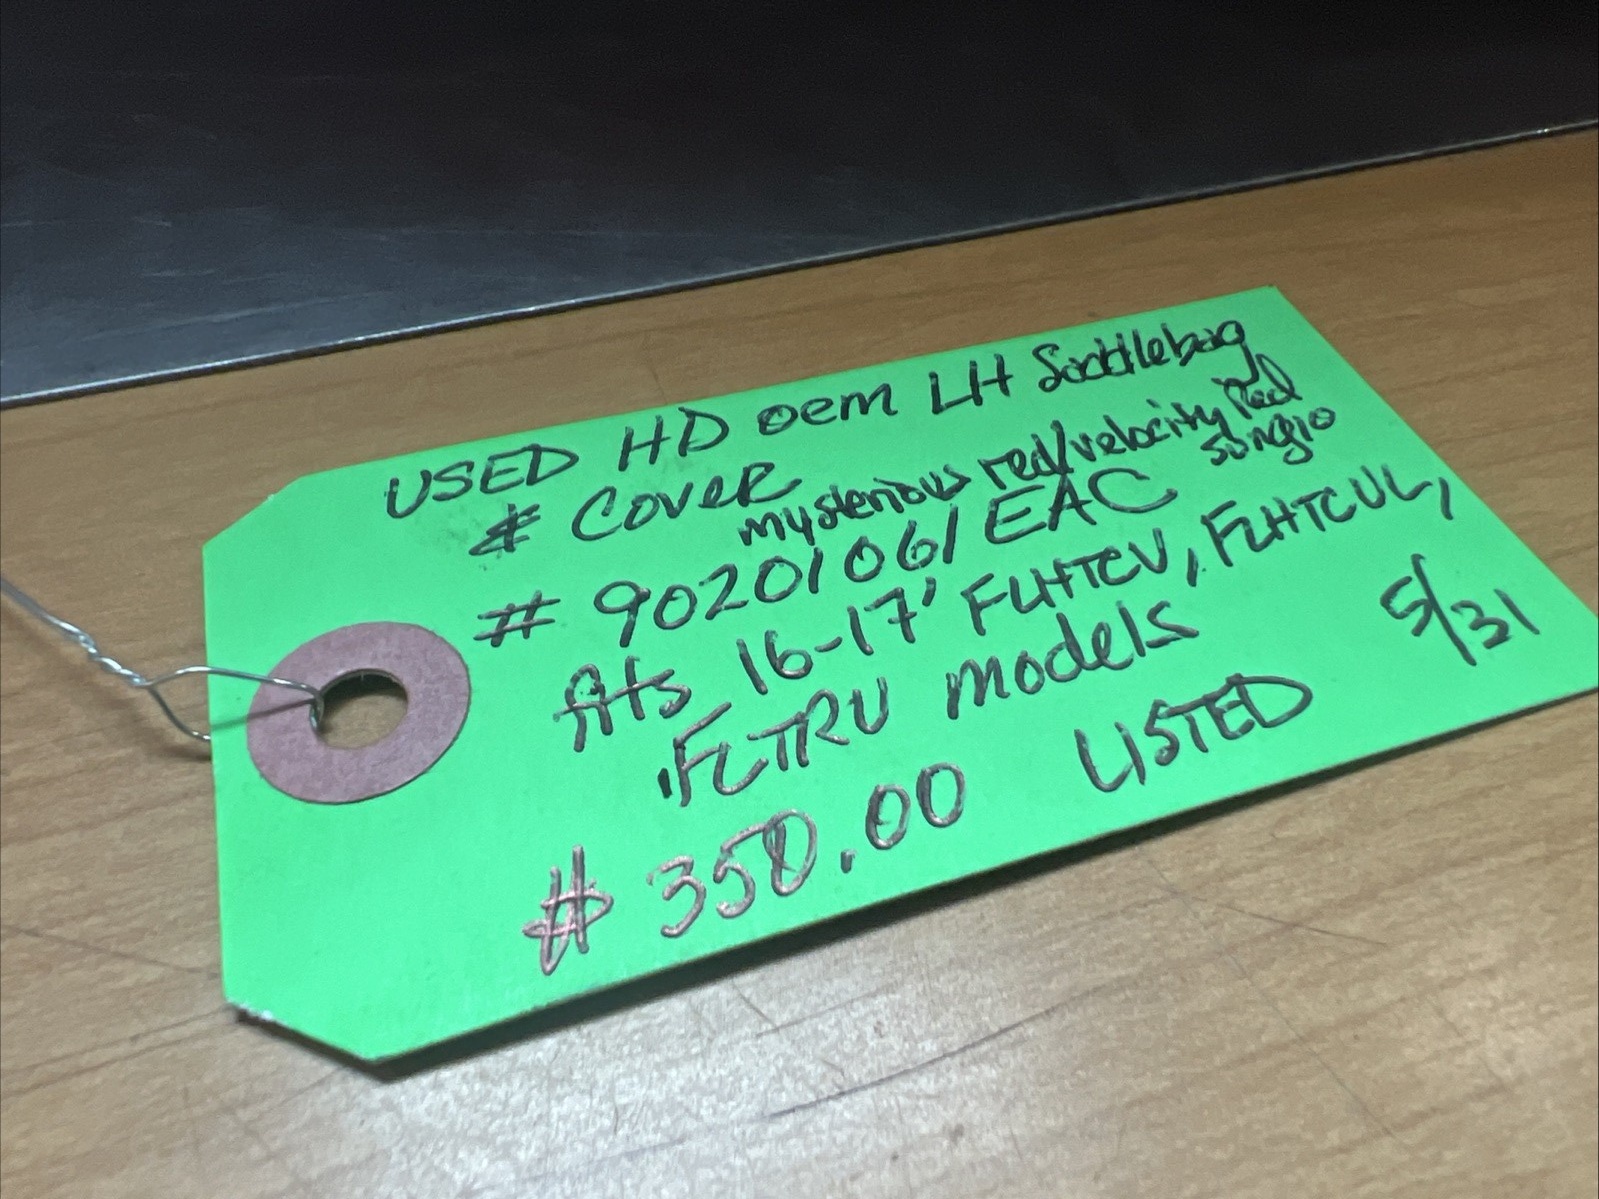 USED HD oem LH Saddlebag
# Cover
mysterious red/velocity Red
sunglo
# 90201061EAC
fits 16-17' FLHTCU, FLHTCUL,
FLTRU models
$350.00 LISTED 5/31